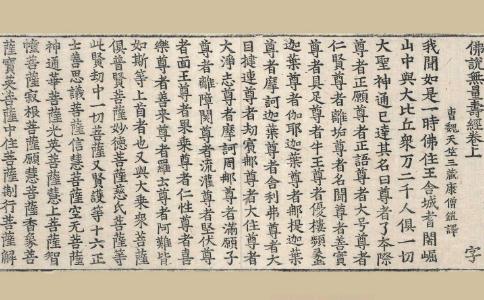 佛說無量壽經卷上 字
曹魏天竺三藏康僧鎧譯
我聞如是一時佛住王舍城耆闍崛
山中與大比丘眾萬二千人俱一切
大聖神通已達其名曰尊者了本際
尊者正願尊者正語尊者大號尊者
仁賢尊者離垢尊者名聞尊者善實
尊者具足尊者牛王尊者優樓頻蠡
迦葉尊者伽耶迦葉尊者那提迦葉
尊者摩訶迦葉尊者舍利弗尊者大
目揵連尊者劫賓那尊者大住尊者
大淨志尊者摩訶周那尊者滿願子
尊者離障閡尊者流灌尊者堅伏尊
者面王尊者果乘尊者仁性尊者喜
樂尊者善來尊者羅云尊者阿難皆
如斯等上首者也又與大乘眾菩薩
俱普賢菩薩妙德菩薩慈氏菩薩等
此賢劫中一切菩薩又賢護等十六正
士善思議菩薩信慧菩薩空無菩薩
神通華菩薩光英菩薩慧上菩薩智
幢菩薩寂根菩薩願慧菩薩香象菩
薩寶英菩薩中住菩薩制行菩薩解